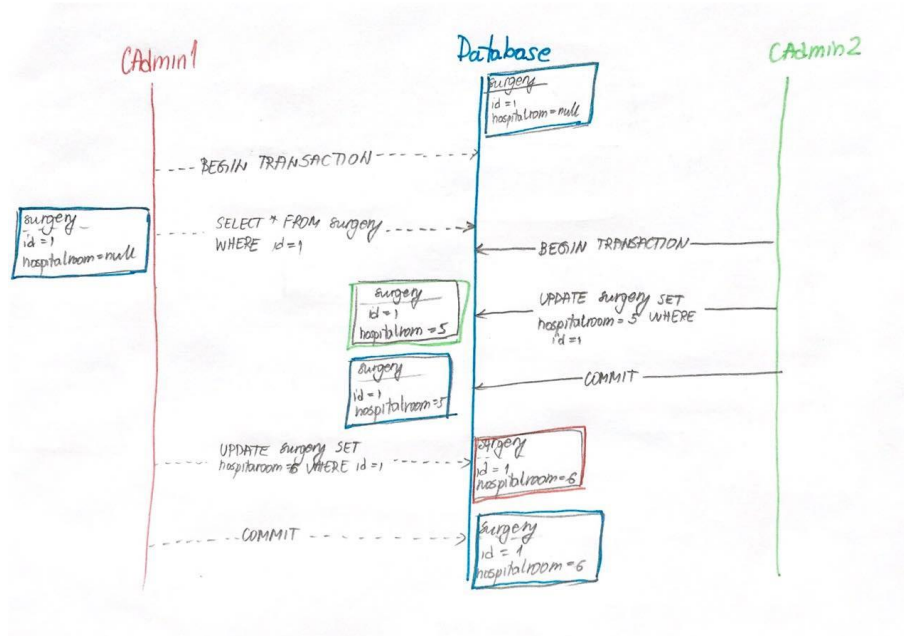 CAdmin1
Database
CAdmin2
surgery
id=1
hospitalroom=null
BEGIN TRANSACTION
surgery
id=1
hospitalroom=null
SELECT * FROM surgery
WHERE id=1
BEGIN TRANSACTION
surgery
id=1
hospitalroom=5
UPDATE surgery SET
hospitalroom=5 WHERE
id=1
surgery
id=1
hospitalroom=5
COMMIT
UPDATE surgery SET
hospitaroom=6 WHERE id=1
surgery
id=1
hospitalroom=6
COMMIT
surgery
id=1
hospitalroom=6